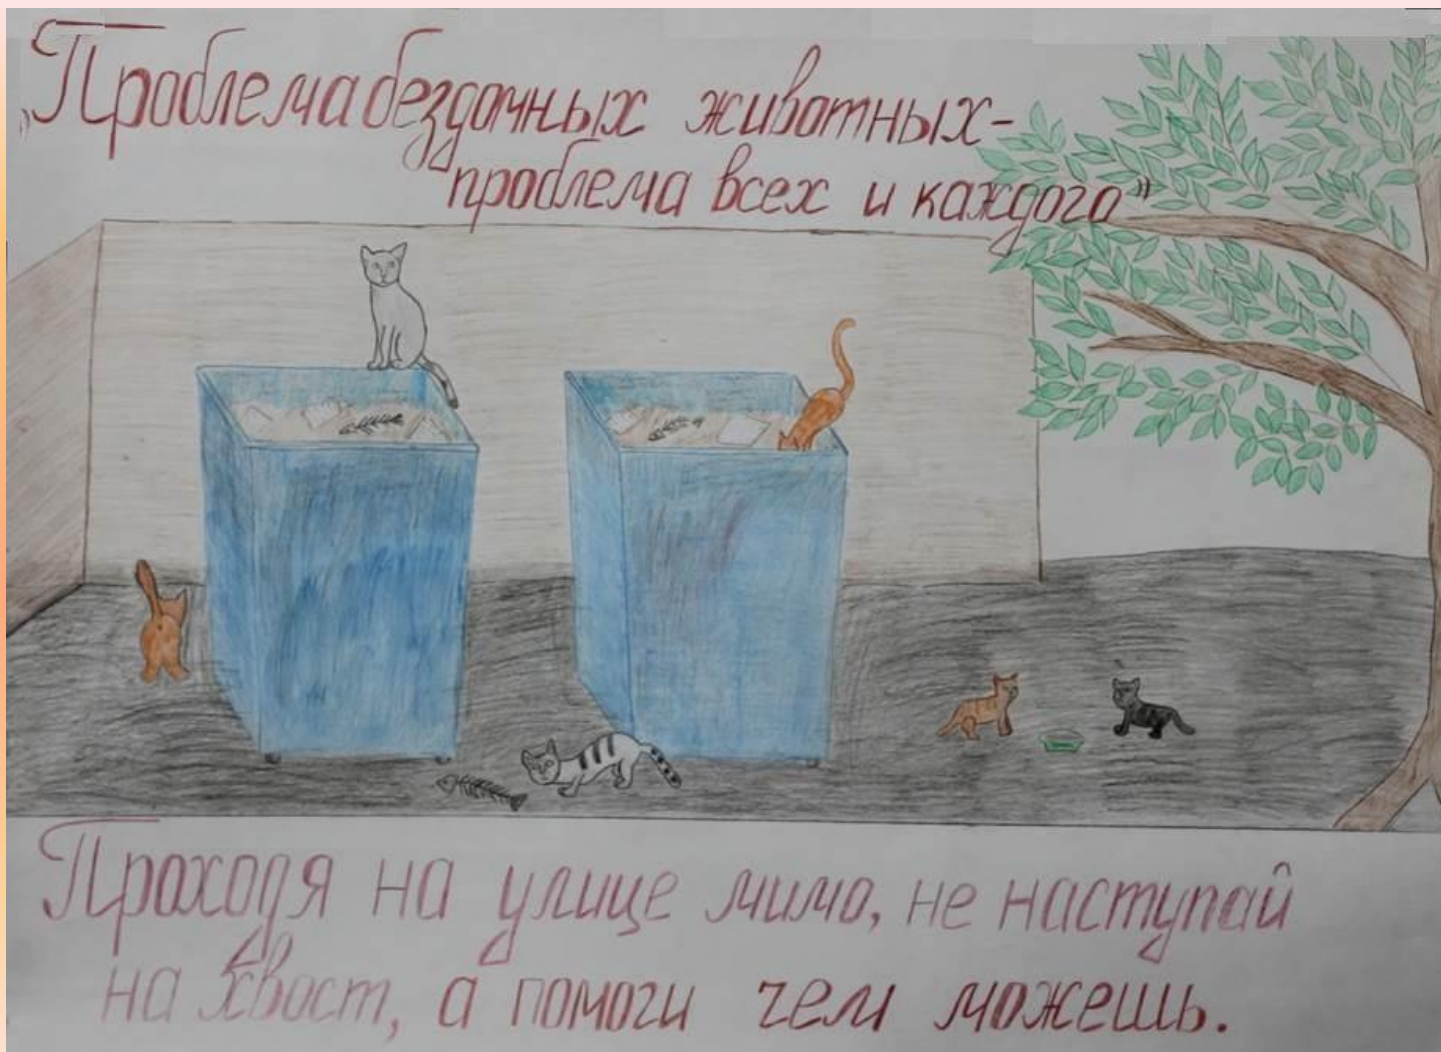 „Проблема бездомных животных-
проблема всех и каждого”
Проходя на улице мимо, не наступай
на хвост, а помоги чем можешь.